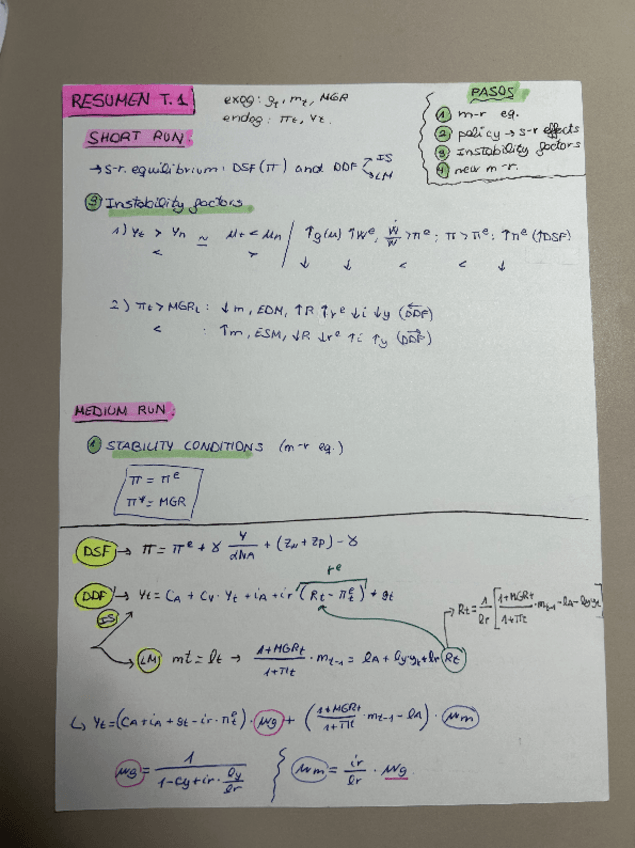 RESUMEN T.1
exog: gt, mt, MGR
endog: πt, Yt.
PASOS
① m-r eq.
② policy → s-r effects
③ Instability factors
④ new m-r.
SHORT RUN:
→ s-r. equilibrium: DSF(π) and DDF < IS
LM
③ Instability factors
1) Yt > Yn ≃ μt < μn / ↑g(μ) ↑Wᵉ, Ẇ/W > πᵉ; π > πᵉ; ↑πᵉ (↑DSF)
< > ↓ ↓ < < ↓
2) πt > MGRt : ↓m, EDM, ↑R ↑rᵉ ↓i ↓y (DDF←)
< : ↑m, ESM, ↓R ↓rᵉ ↑i ↑y (DDF→)
MEDIUM RUN:
① STABILITY CONDITIONS (m-r eq.)
π = πᵉ
π* = MGR
DSF → π = πᵉ + γ Y/αNA + (ZN + ZP) - γ
rᵉ
DDF → Yt = CA + CY · Yt + iA + ir (Rt - πtᵉ) + gt
IS
→ Rt = 1/lr [1+MGRt/1+πt · mt-1 - lA - ly yt]
LM mt = lt → 1+MGRt/1+πt · mt-1 = lA + ly yt + lr Rt
↳ Yt = (CA + iA + gt - ir · πtᵉ) · μg + (1+MGRt/1+πt · mt-1 - lA) · μm
μg = 1/1-cy+ir · ly/lr
μm = ir/lr · μg